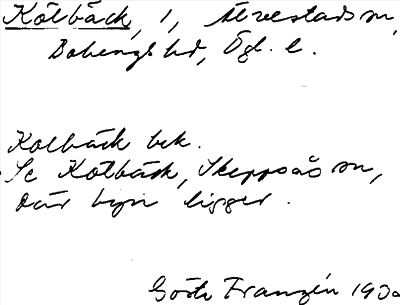 Kolbäck, 1, Älvestads sn,
Bobergs hd, Ögl. l.
Kolbäck bek.
Se Kolbäck, Skeppsås sn,
där byn ligger.
Gösta Franzén 1930